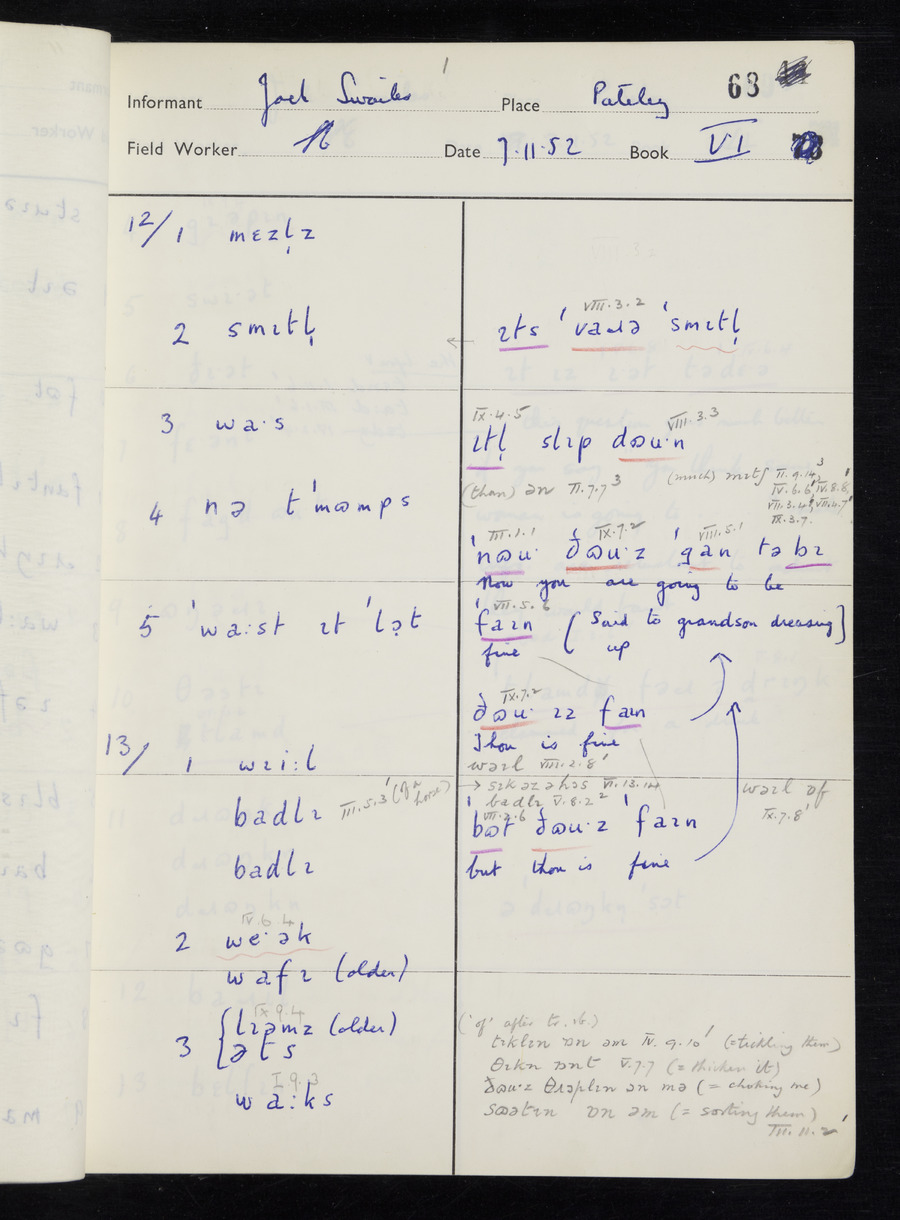 Informant Joel Swailes Place Pateley 63
Field Worker Date 7.11.52 Book VI
12/ 1 mɛzl̩z
2 smɪtl̩
ɪts ˈvaɹə ˈsmɪtl̩
VIII.3.2
3 wa·s
IX.4.5 VIII.3.3
ɪtl̩ slɪp dəu·n
(than) ən VI.7.7³
(much) mɪtʃ II.9.14³
IV.6.6¹ IV.8.8¹
VII.3.4¹, VII.4.7¹
IX.3.7.
4 nə tˈməmps
III.1.1 IX.7.2 VIII.5.1
ˈnəu· ˈðəu·z ˈgan tə bɪ
Now you are going to be
VII.5.6
ˈfaɪn (Said to grandson dressing
fine up
5 ˈwa:st ɪt ˈlɔt
IX.7.2
ðəu· ɪz faɪn
Thou is fine
waɪl VIII.2.8¹
13/ 1 wɪi:l
→ sɪkəzəhəs VI.13.14
badlɪ III.5.3¹ (of a horse)
badlɪ V.8.2²
VII.2.6
ˈbət ðəu·z ˈfaɪn
but thou is fine
waɪl of
IX.7.8¹
badlɪ
IV.6.4
2 we·ək
wafɪ (older)
IX.9.4
3 lɪəmz (older)
əts
I.9.3
wa:ks
('of' after tr. vb.)
tɪklɪn ɒn əm IV.9.10¹ (= tickling them)
θɪkn ɒnt V.7.7 (= thicken it)
ðəu·z θɹəplɪn ən mə (= choking me)
səətɪn ɒn əm (= sorting them)
III.11.2¹